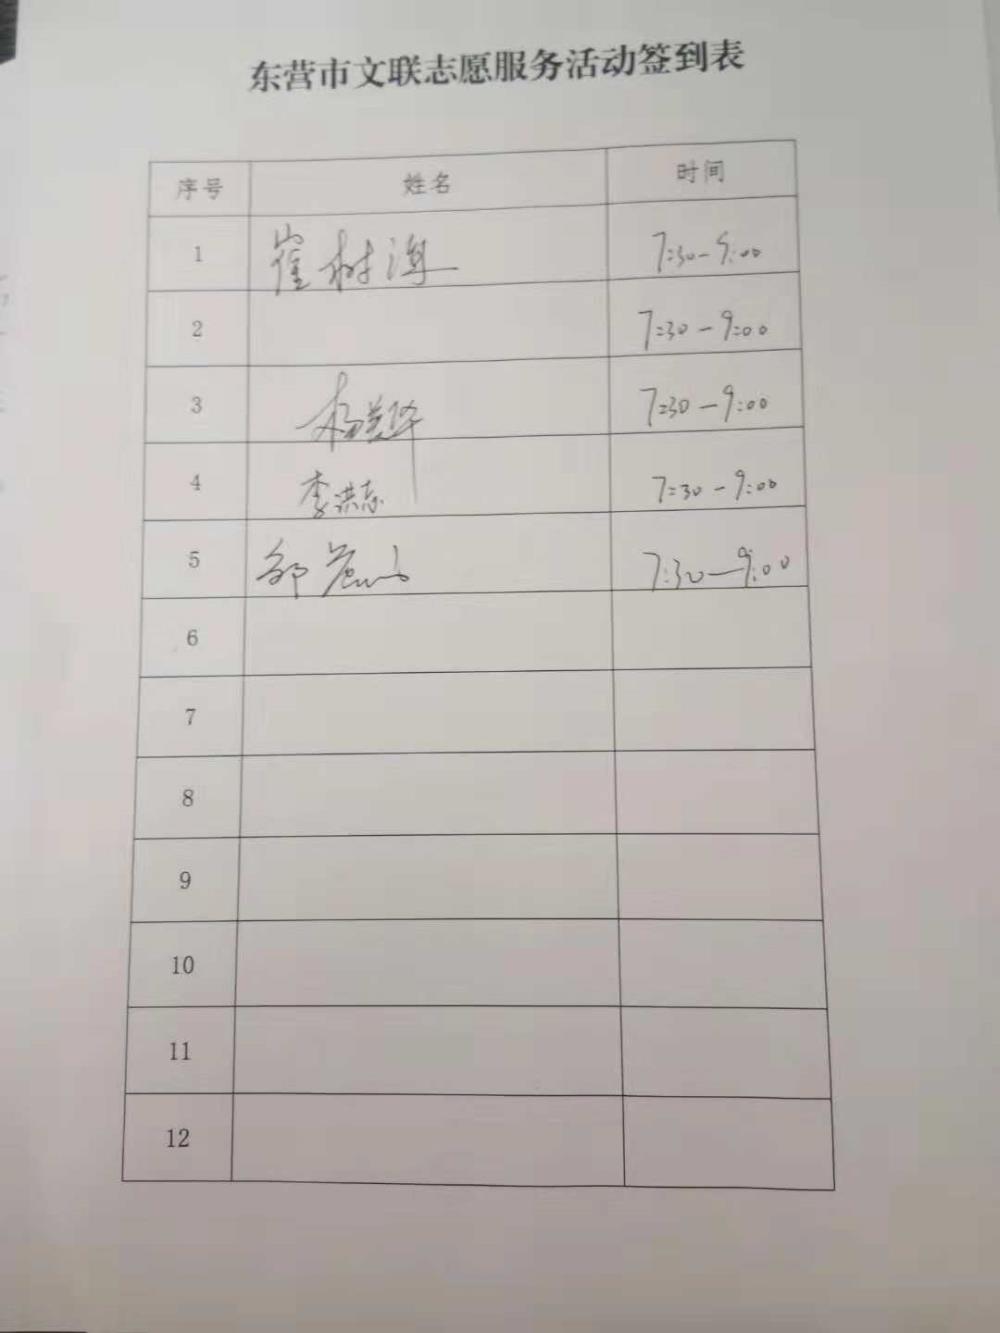 东营市文联志愿服务活动签到表
序号 姓名 时间
1 崔树 7:30-9:00
2 7:30-9:00
3 杨 7:30-9:00
4 李洪志 7:30-9:00
5 邹 7:30-9:00
6
7
8
9
10
11
12